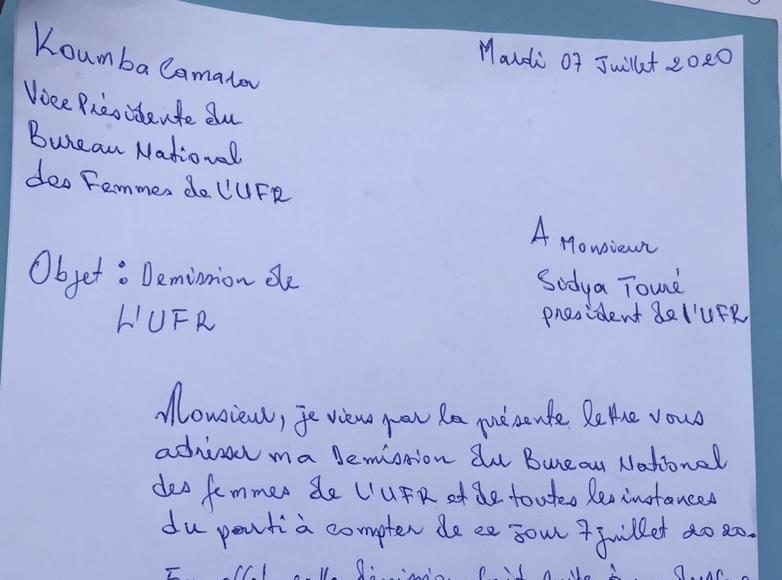 Koumba Camara
Mardi 07 Juillet 2020
Vice Présidente du
Bureau National
des Femmes de L'UFR
A Monsieur
Sidya Touré
president de l'UFR
Objet : Demission de
L'UFR
Monsieur, je viens par la présente lettre vous
adresser ma Demission du Bureau National
des femmes de L'UFR et de toutes les instances
du parti à compter de ce jour 7 juillet 2020.
En effet cette démission fait suite à